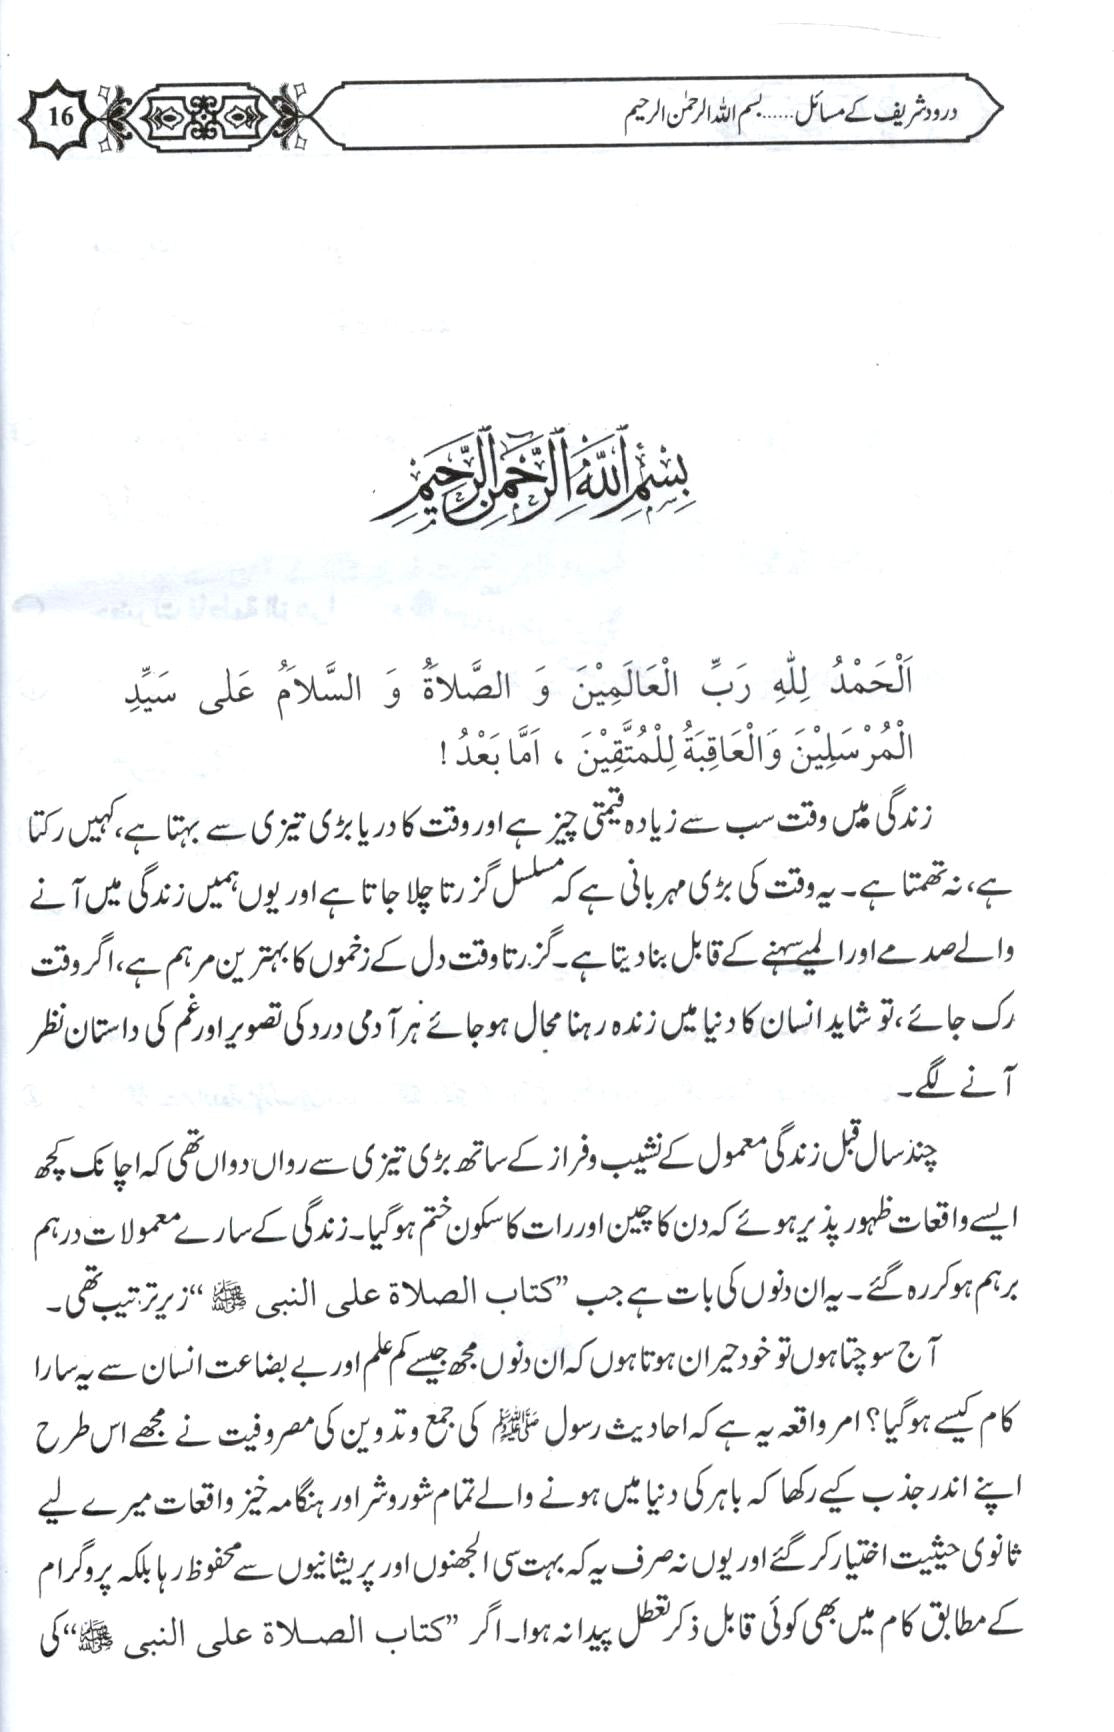 درود شریف کے مسائل......بسم اللہ الرحمٰن الرحیم
16
بِسْمِ اللّٰهِ الرَّحْمٰنِ الرَّحِيْمِ
اَلْحَمْدُ لِلّٰهِ رَبِّ الْعَالَمِيْنَ وَ الصَّلَاةُ وَ السَّلَامُ عَلى سَيِّدِ
الْمُرْسَلِيْنَ وَالْعَاقِبَةُ لِلْمُتَّقِيْنَ ، اَمَّا بَعْدُ !
زندگی میں وقت سب سے زیادہ قیمتی چیز ہے اور وقت کا دریا بڑی تیزی سے بہتا ہے، کہیں رکتا
ہے، نہ تھمتا ہے۔ یہ وقت کی بڑی مہربانی ہے کہ مسلسل گزرتا چلا جاتا ہے اور یوں ہمیں زندگی میں آنے
والے صدمے اور المیے سہنے کے قابل بنا دیتا ہے۔ گزرتا وقت دل کے زخموں کا بہترین مرہم ہے، اگر وقت
رک جائے، تو شاید انسان کا دنیا میں زندہ رہنا محال ہو جائے ہر آدمی درد کی تصویر اور غم کی داستان نظر
آنے لگے۔
چند سال قبل زندگی معمول کے نشیب و فراز کے ساتھ بڑی تیزی سے رواں دواں تھی کہ اچانک کچھ
ایسے واقعات ظہور پذیر ہوئے کہ دن کا چین اور رات کا سکون ختم ہو گیا۔ زندگی کے سارے معمولات درہم
برہم ہو کر رہ گئے۔ یہ ان دنوں کی بات ہے جب ”کتاب الصلاۃ علی النبی ﷺ“ زیر ترتیب تھی۔
آج سوچتا ہوں تو خود حیران ہوتا ہوں کہ ان دنوں مجھ جیسے کم علم اور بے بضاعت انسان سے یہ سارا
کام کیسے ہو گیا؟ امر واقعہ یہ ہے کہ احادیث رسول ﷺ کی جمع و تدوین کی مصروفیت نے مجھے اس طرح
اپنے اندر جذب کیے رکھا کہ باہر کی دنیا میں ہونے والے تمام شور و شر اور ہنگامہ خیز واقعات میرے لیے
ثانوی حیثیت اختیار کر گئے اور یوں نہ صرف یہ کہ بہت سی الجھنوں اور پریشانیوں سے محفوظ رہا بلکہ پروگرام
کے مطابق کام میں بھی کوئی قابل ذکر تعطل پیدا نہ ہوا۔ اگر ”کتاب الصلاۃ علی النبی ﷺ“ کی